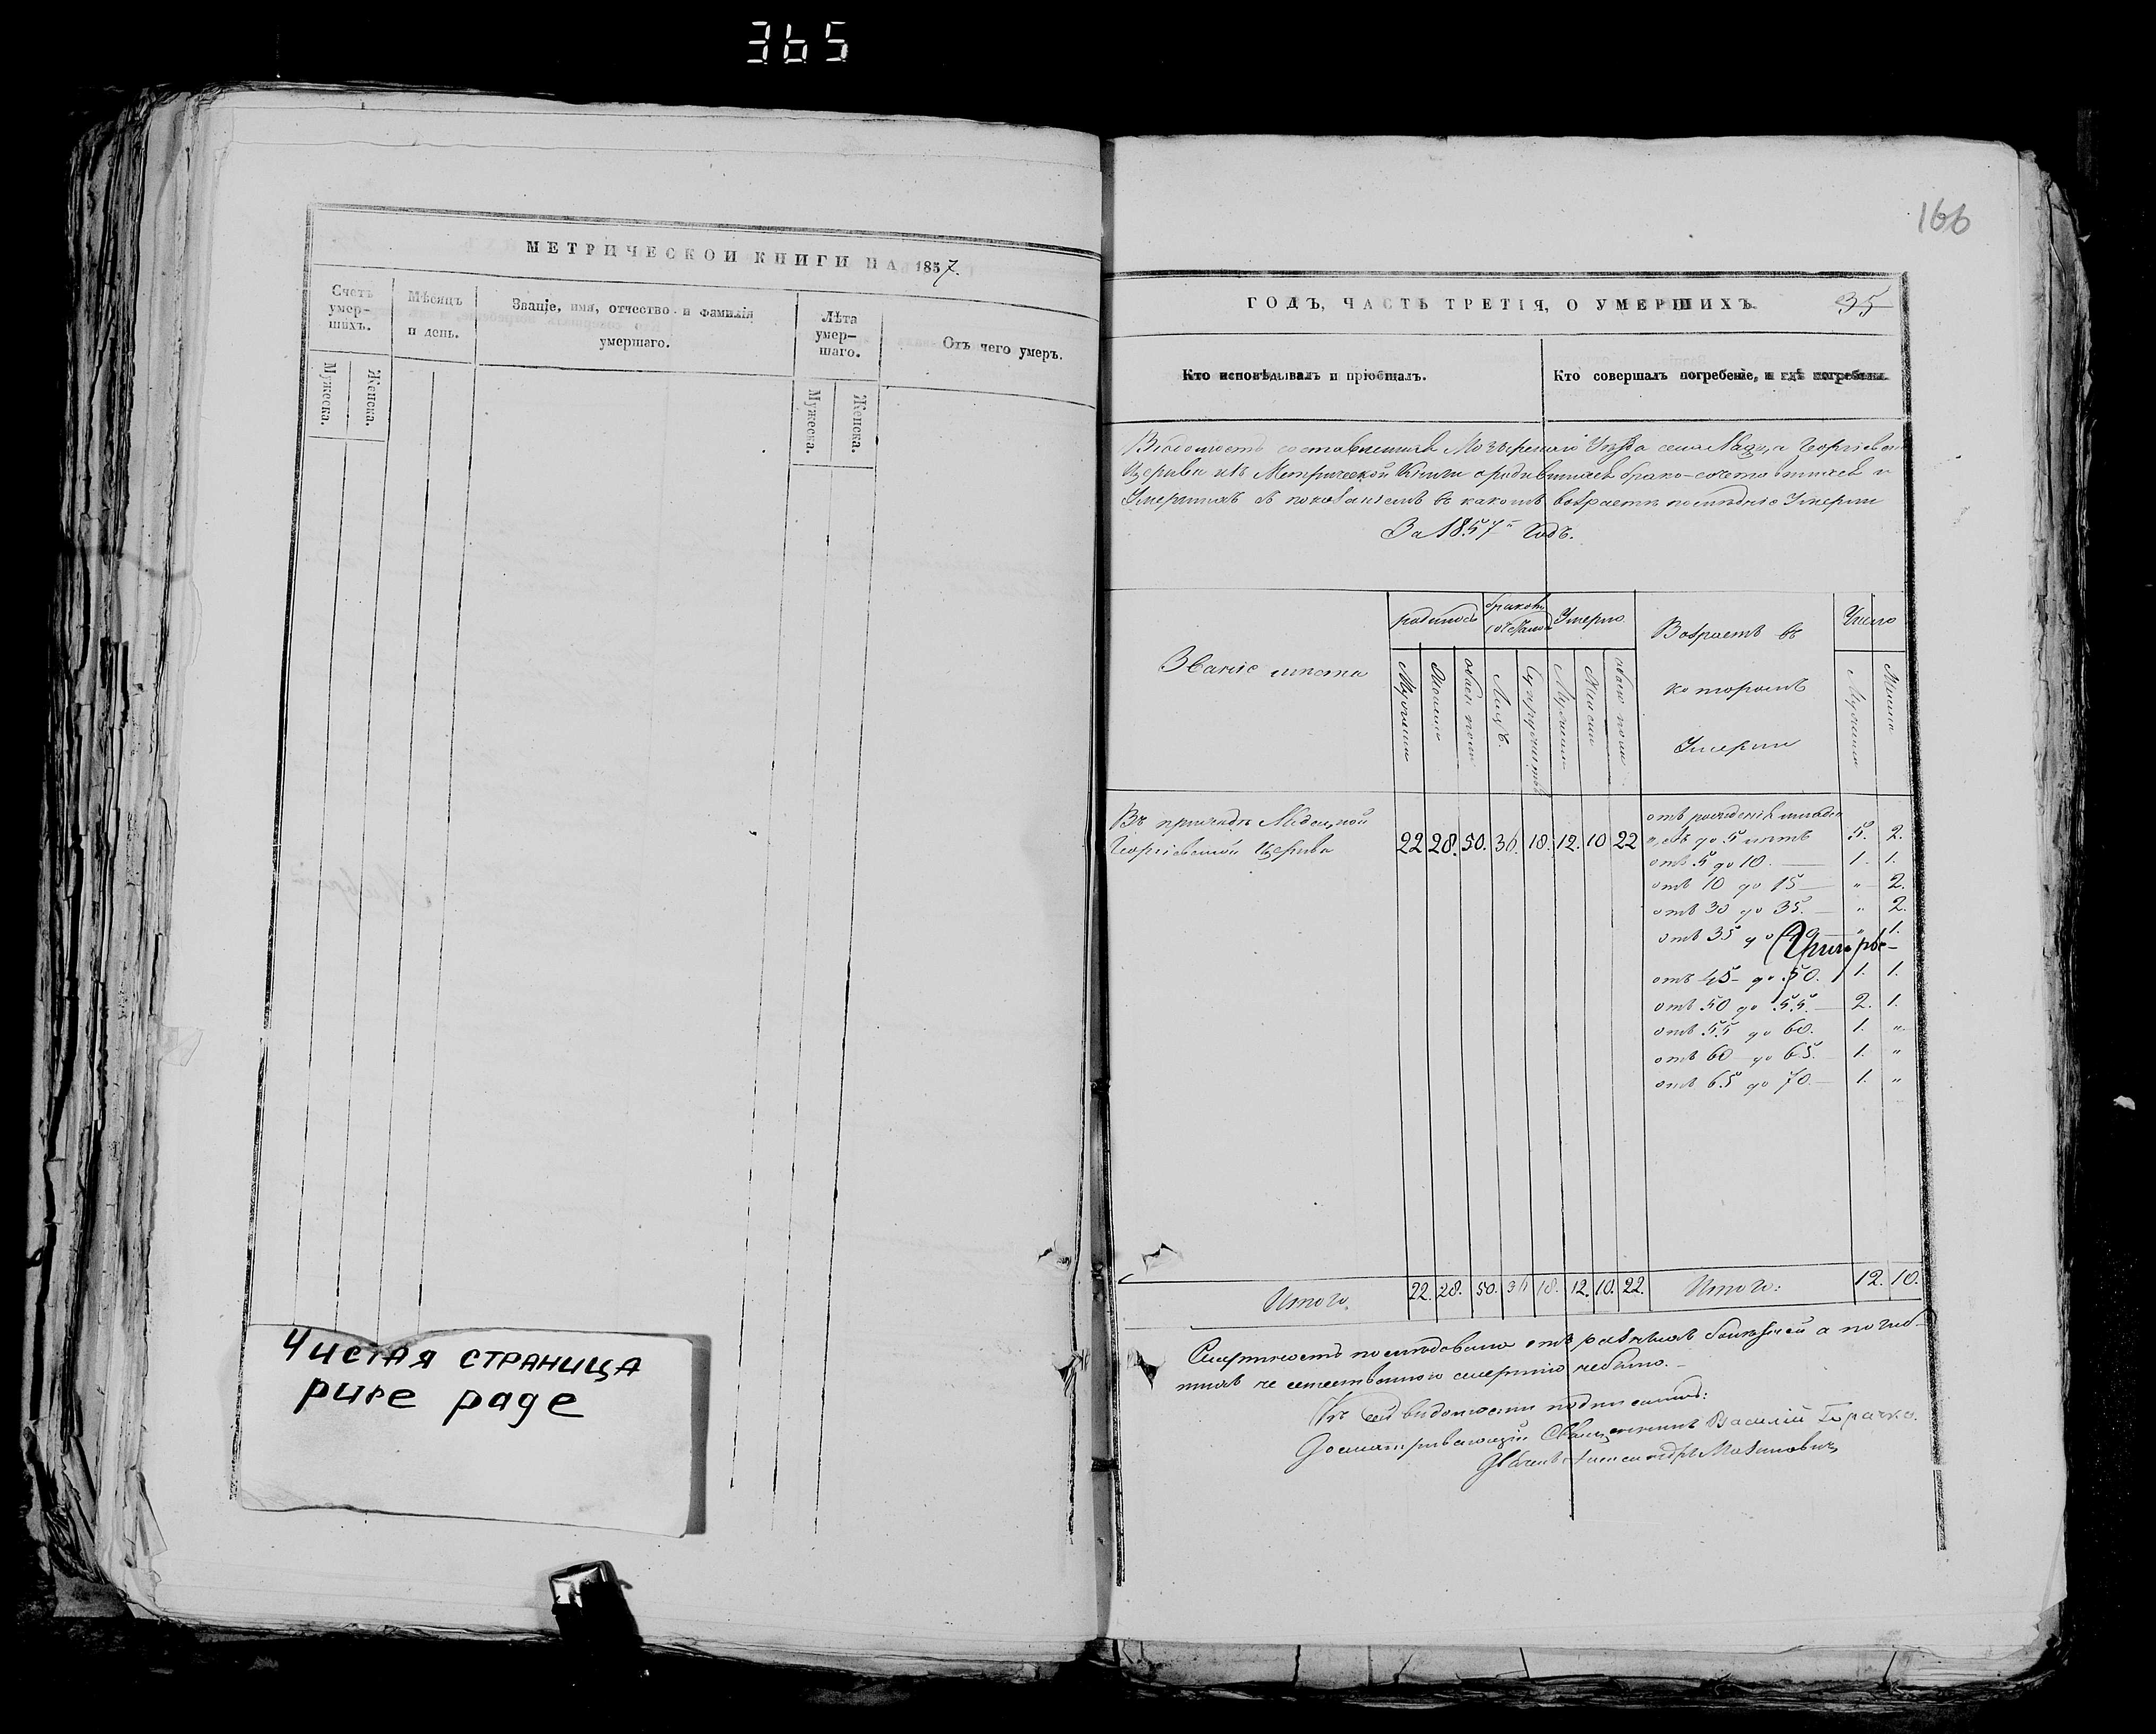 365
МЕТРИЧЕСКОИ КНИГИ НА 1857.
Счетъ умер-шихъ.
Мужеска.
Женска.
Мѣсяцъ и день.
Званіе, имя, отчество и фамилія умершаго.
Лѣта умер-шаго.
Мужеска.
Женска.
Отъ чего умеръ.
Чистая страница
pure page
166
ГОДЪ, ЧАСТЬ ТРЕТІЯ, О УМЕРШИХЪ.
35
Кто исповѣдывалъ и пріобщалъ.
Кто совершалъ погребеніе, и гдѣ погребены.
Мозырскаго Уѣзда села Георгіевской
Церкви изъ Метрической Книги о родившихся брако-сочетавшихся и
Умершихъ съ показаніемъ въ какомъ возрастѣ послѣдніе Умерли
За 1857й Годъ.
Званіе мѣста
родилось
браковъ
Умерло
Возрастъ въ
которомъ
Умерли
Число
обоего пола
Лицъ.
обоего пола
Въ приходѣ
Георгіевской Церкви
22 28. 50. 36. 18. 12. 10 22
отъ рожденія
до 5 лѣтъ 5. 2.
отъ 5 до 10. — 1. 1.
отъ 10 до 15 — " 2.
отъ 30 до 35. — " 2.
отъ 35 до " 1.
отъ 45 до 50. 1. 1.
отъ 50 до 55. — 2. 1.
отъ 55 до 60. 1. "
отъ 60 до 65. 1. "
отъ 65 до 70. — 1. "
Итого. 22. 28. 50. 36 18. 12. 10. 22. Итого: 12. 10.
Смертность послѣдовала отъ разныхъ болѣзней а погиб-
шихъ не естественною смертію небыло.
Къ сей вѣдомости подписались:
Священникъ Василій Горачко.
Александръ